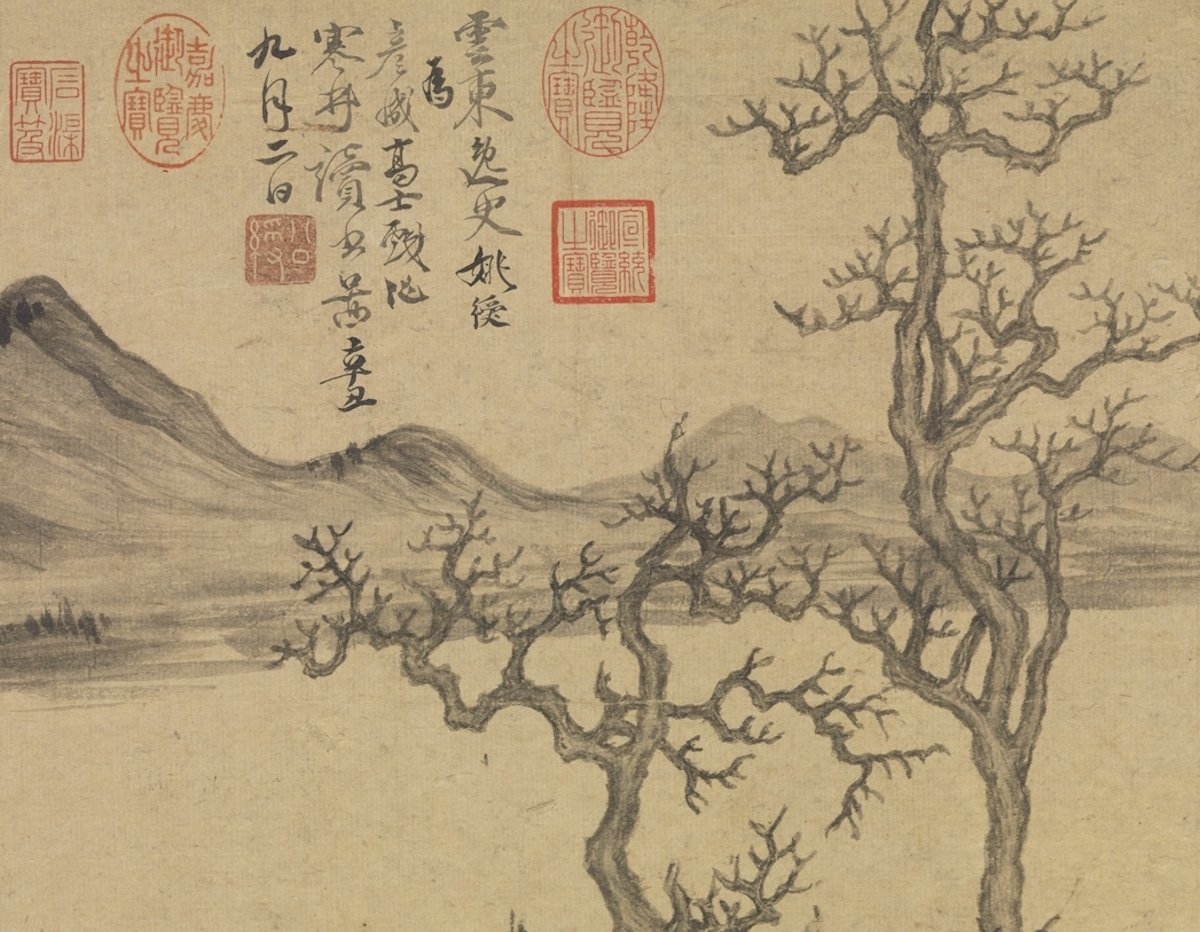 乾隆御覽之寶
宣統御覽之寶
雲東逸史姚綬
為
彥誠高士戲作
寒林讀書圖辛丑
九月二日
公綬
嘉慶御覽之寶
石渠寶笈